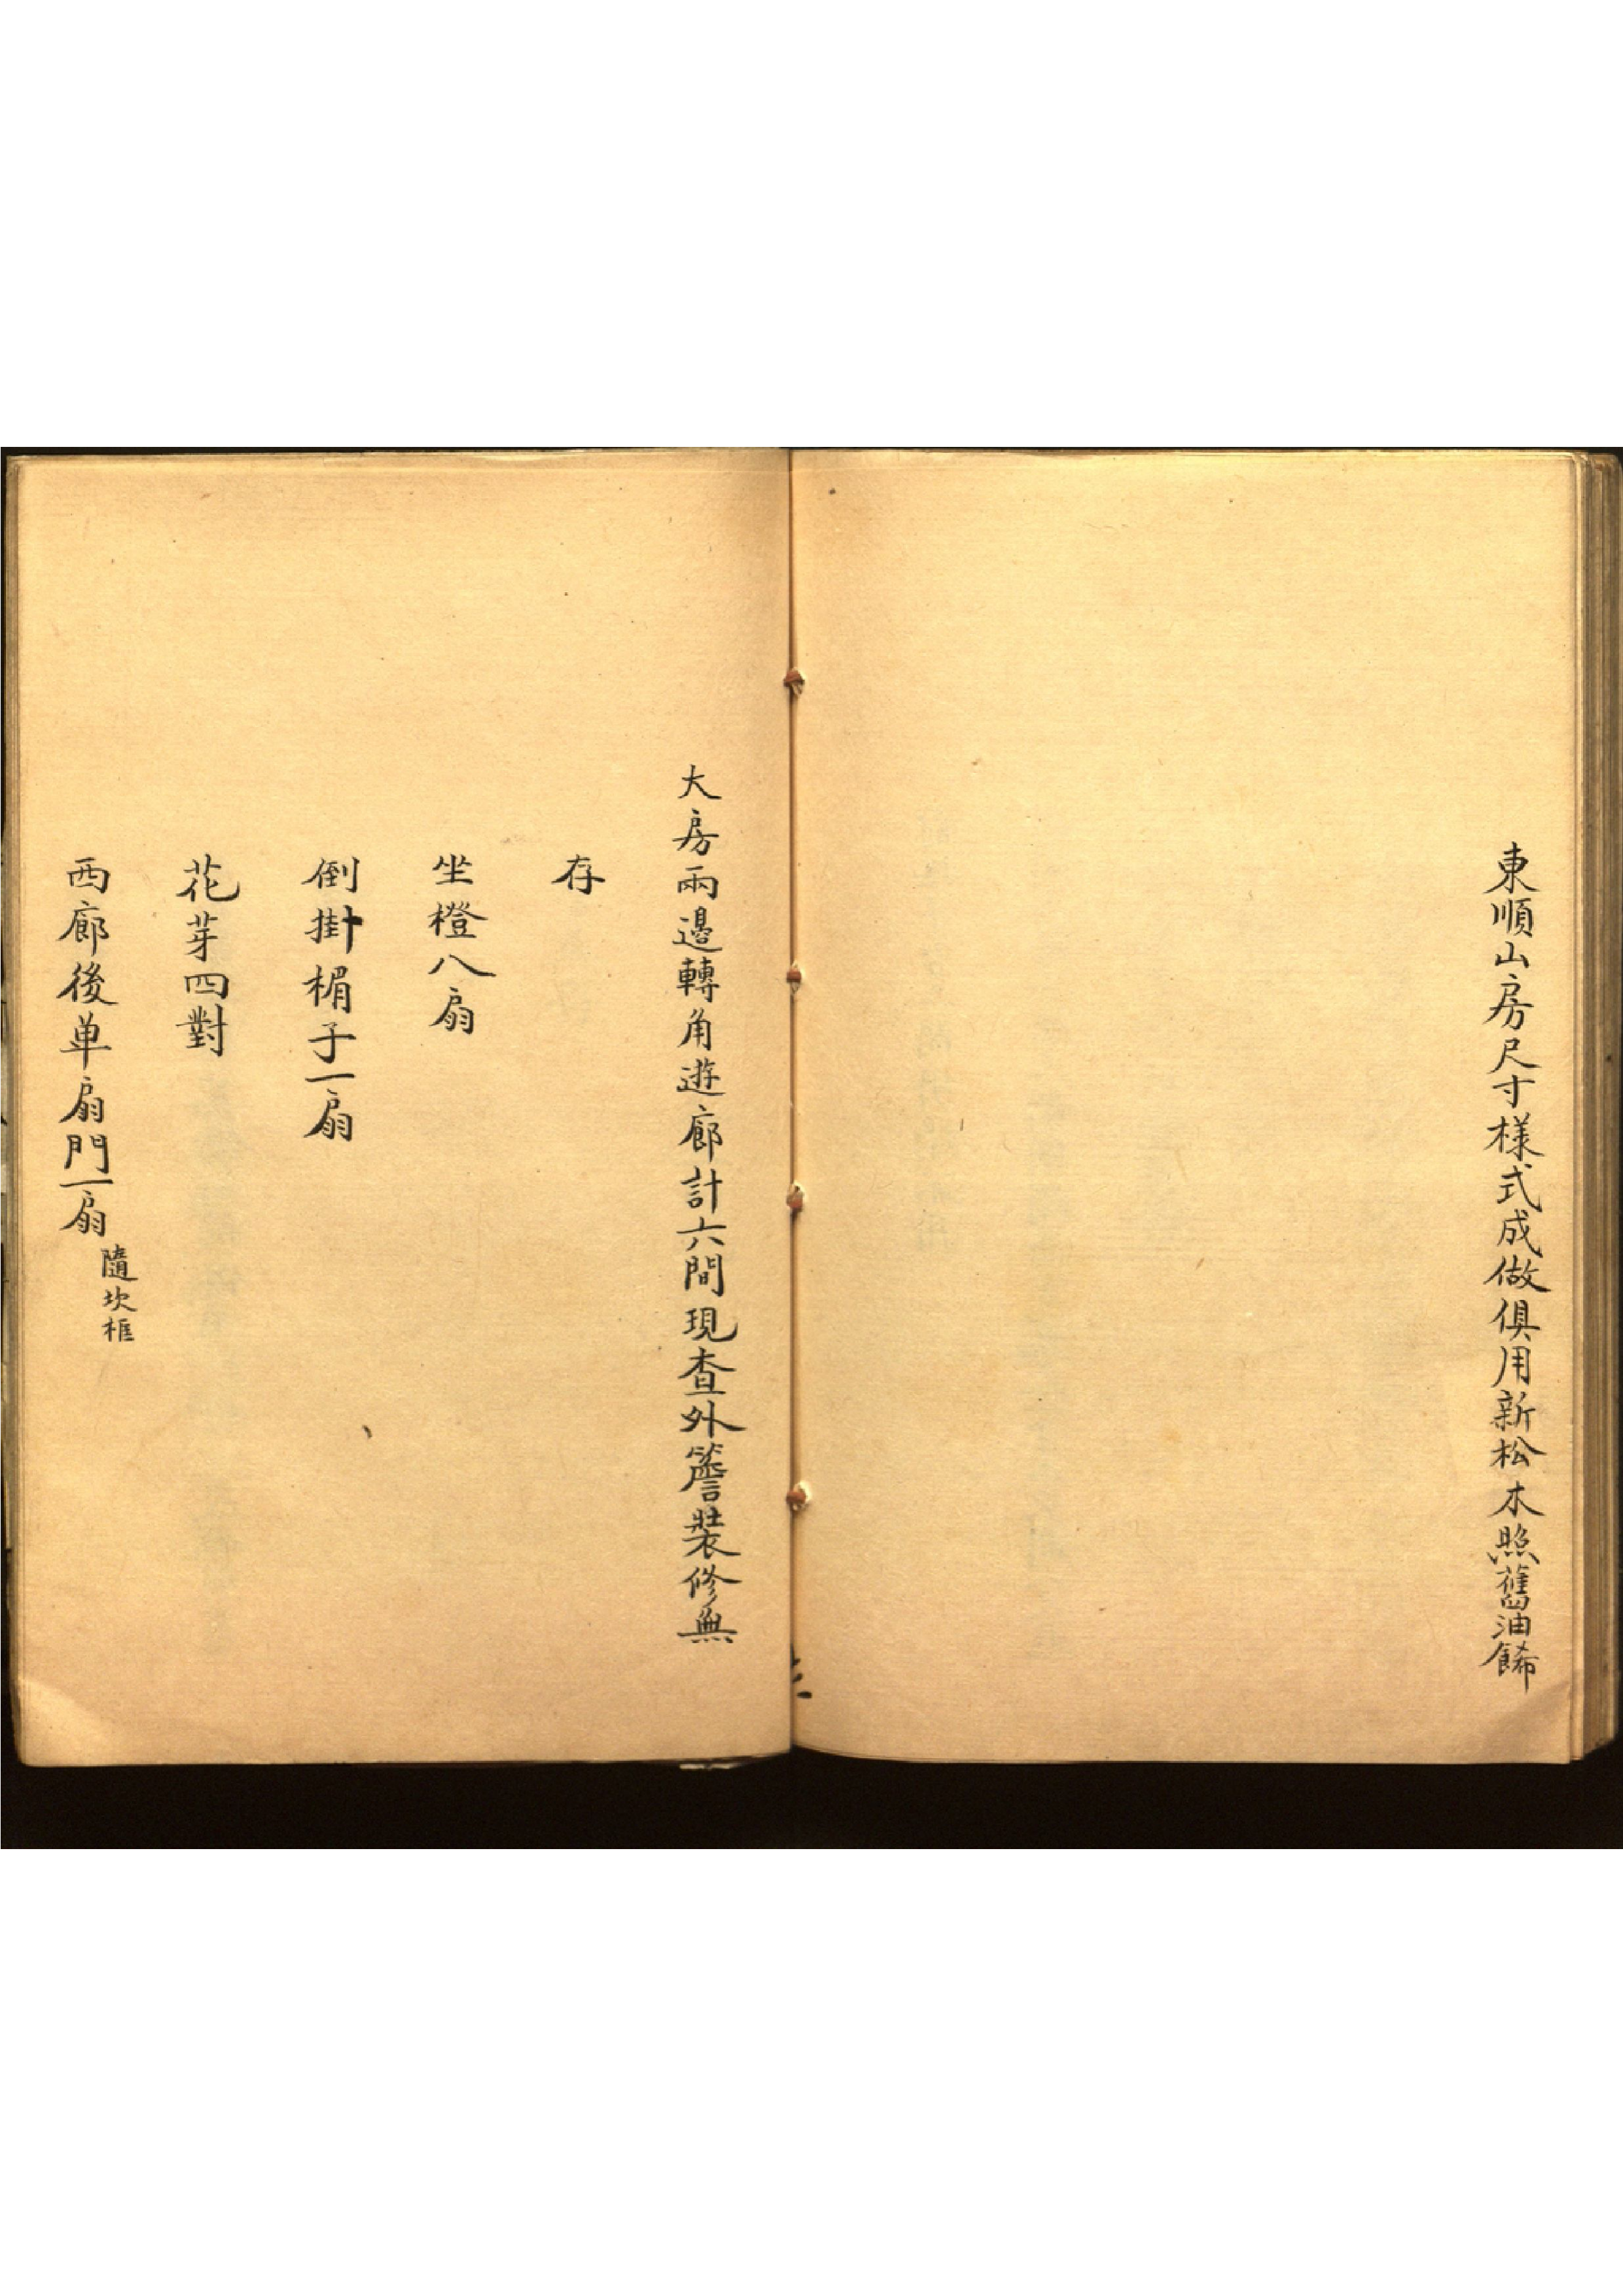 東順山房尺寸樣式成做俱用新松木照舊油餙
大房兩邊轉角遊廊計六間現查外簷裝修無
存
坐櫈八扇
倒掛楣子一扇
花芽四對
西廊後单扇門一扇
隨坎框